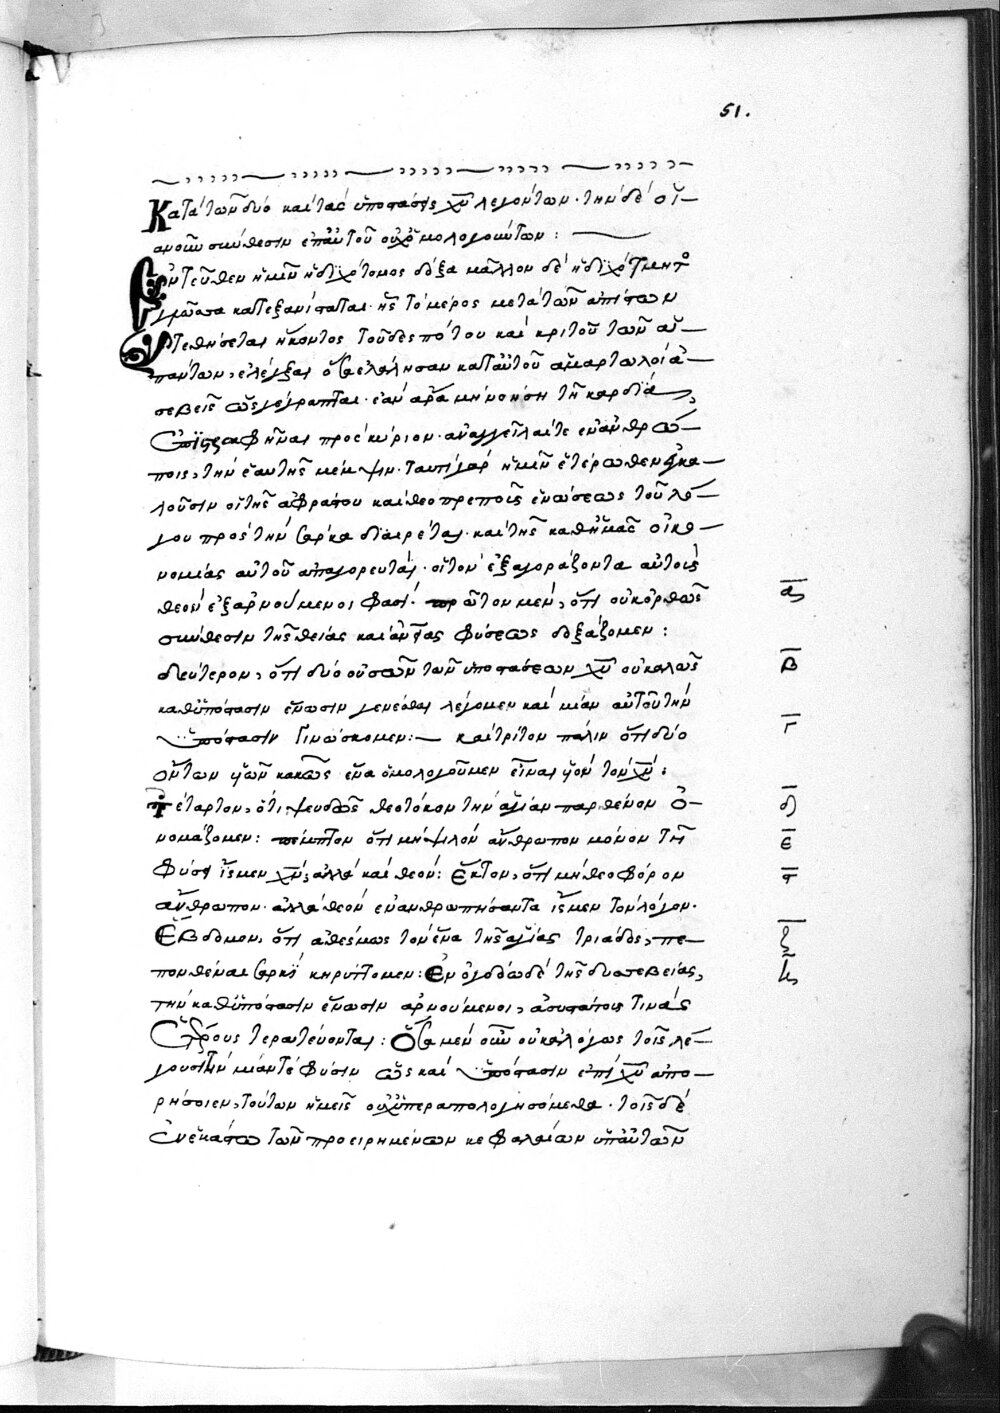 51.
Κατὰ τῶν δύο καὶ τὰς ὑποστάσεις χ̅υ̅ λεγόντων· τὴν δὲ οἵ–
ανοῦν σύνθεσιν ἐπ' αὐτοῦ οὐχ ὁμολογούντων:
Ἐντεῦθεν ἡμῖν ἡ διχότομος δόξα μᾶλλον δὲ ἡ διχότμητος
γλῶσσα κατεξανίσταται· ἧς τὸ μέρος μετὰ τῶν ἀπίστων
τεθήσεται ἥκοντος τοῦ δεσπότου καὶ κριτοῦ τῶν ἁ–
πάντων, ἐλέγξαι ὅσα ἐλάλησαν κατ' αὐτοῦ ἁμαρτωλοὶ ἀ–
σεβεῖς ὡς γέγραπται· ἐὰν ἄρα μὴ νοήσῃ τῇ καρδίᾳ,
ἐπιστραφῆναι πρὸς κύριον· ἀναγγεῖλαί τε ἐν ἀνθρώ–
ποις, τὴν ἑαυτῆς μέμψιν· ταύτῃ γὰρ ἡμῖν ἑτέρωθεν ἐγκα–
λοῦσιν οἱ τῆς ἀφράστου καὶ θεοπρεποῦς ἑνώσεως τοῦ λό–
γου πρὸς τὴν σάρκα διαιρέται· καὶ τῆς καθ' ἡμᾶς οἰκο–
νομίας αὐτοῦ ἀπαγορευταί· οἳ τὸν ἐξαγοράζοντα αὐτοὺς
θεὸν ἐξαρνούμενοι φασί· πρῶτον μέν, ὅτι οὐκ ὀρθῶς α̅
σύνθεσιν τῆς θείας καὶ ἀν̅ι̅ας φύσεως δοξάζομεν:
δεύτερον, ὅτι δύο οὐσῶν τῶν ὑποστάσεων χ̅υ̅ οὐ καλῶς β̅
καθ' ὑπόστασιν ἕνωσιν γενέσθαι λέγομεν καὶ μίαν αὐτοῦ τὴν
ὑπόστασιν γινώσκομεν:– καὶ τρίτον πάλιν ὅτι δύο γ̅
ὄντων υ̅ῶν κακῶς ἕνα ὁμολογοῦμεν εἶναι υ̅ὸν τὸν χ̅ν̅:
τέταρτον, ὅτι ψευδῶς θεοτόκον τὴν ἁγίαν παρθένον ὀ– δ̅
νομάζομεν: πέμπτον ὅτι μὴ ψιλὸν ἄνθρωπον μόνον τῇ ε̅
φύσει ἴσμεν χ̅ν̅, ἀλλὰ καὶ θεόν: ἕκτον, ὅτι μὴ θεοφόρον ϛ̅
ἄνθρωπον· ἀλλὰ θεὸν ἐνανθρωπήσαντα ἴσμεν τὸν λόγον·
ἕβδομον, ὅτι ἀθέσμως τὸν ἕνα τῆς ἁγίας τριάδος, πε– ζ̅
πονθέναι σαρκὶ κηρύττομεν: ἐν ὀγδόῳ δὲ τῆς δυσσεβείας, η̅
τὴν καθ' ὑπόστασιν ἕνωσιν ἀρνούμενοι, ἀσυστάτους τινὰς
τερατεύονται: Ὅσα μὲν οὖν οὐκ ἀλόγως τοῖς λέ–
γουσιν μίαν τὲ φύσιν ὡς καὶ ὑπόστασιν ἐπὶ χ̅υ̅ ἀπο–
ρήσοιεν, τούτων ἡμεῖς οὐχ ὑπεραπολογησόμεθα· τοῖς δὲ
ἐν ἑκάστῳ τῶν προειρημένων κεφαλαίων ὑπ' αὐτῶν